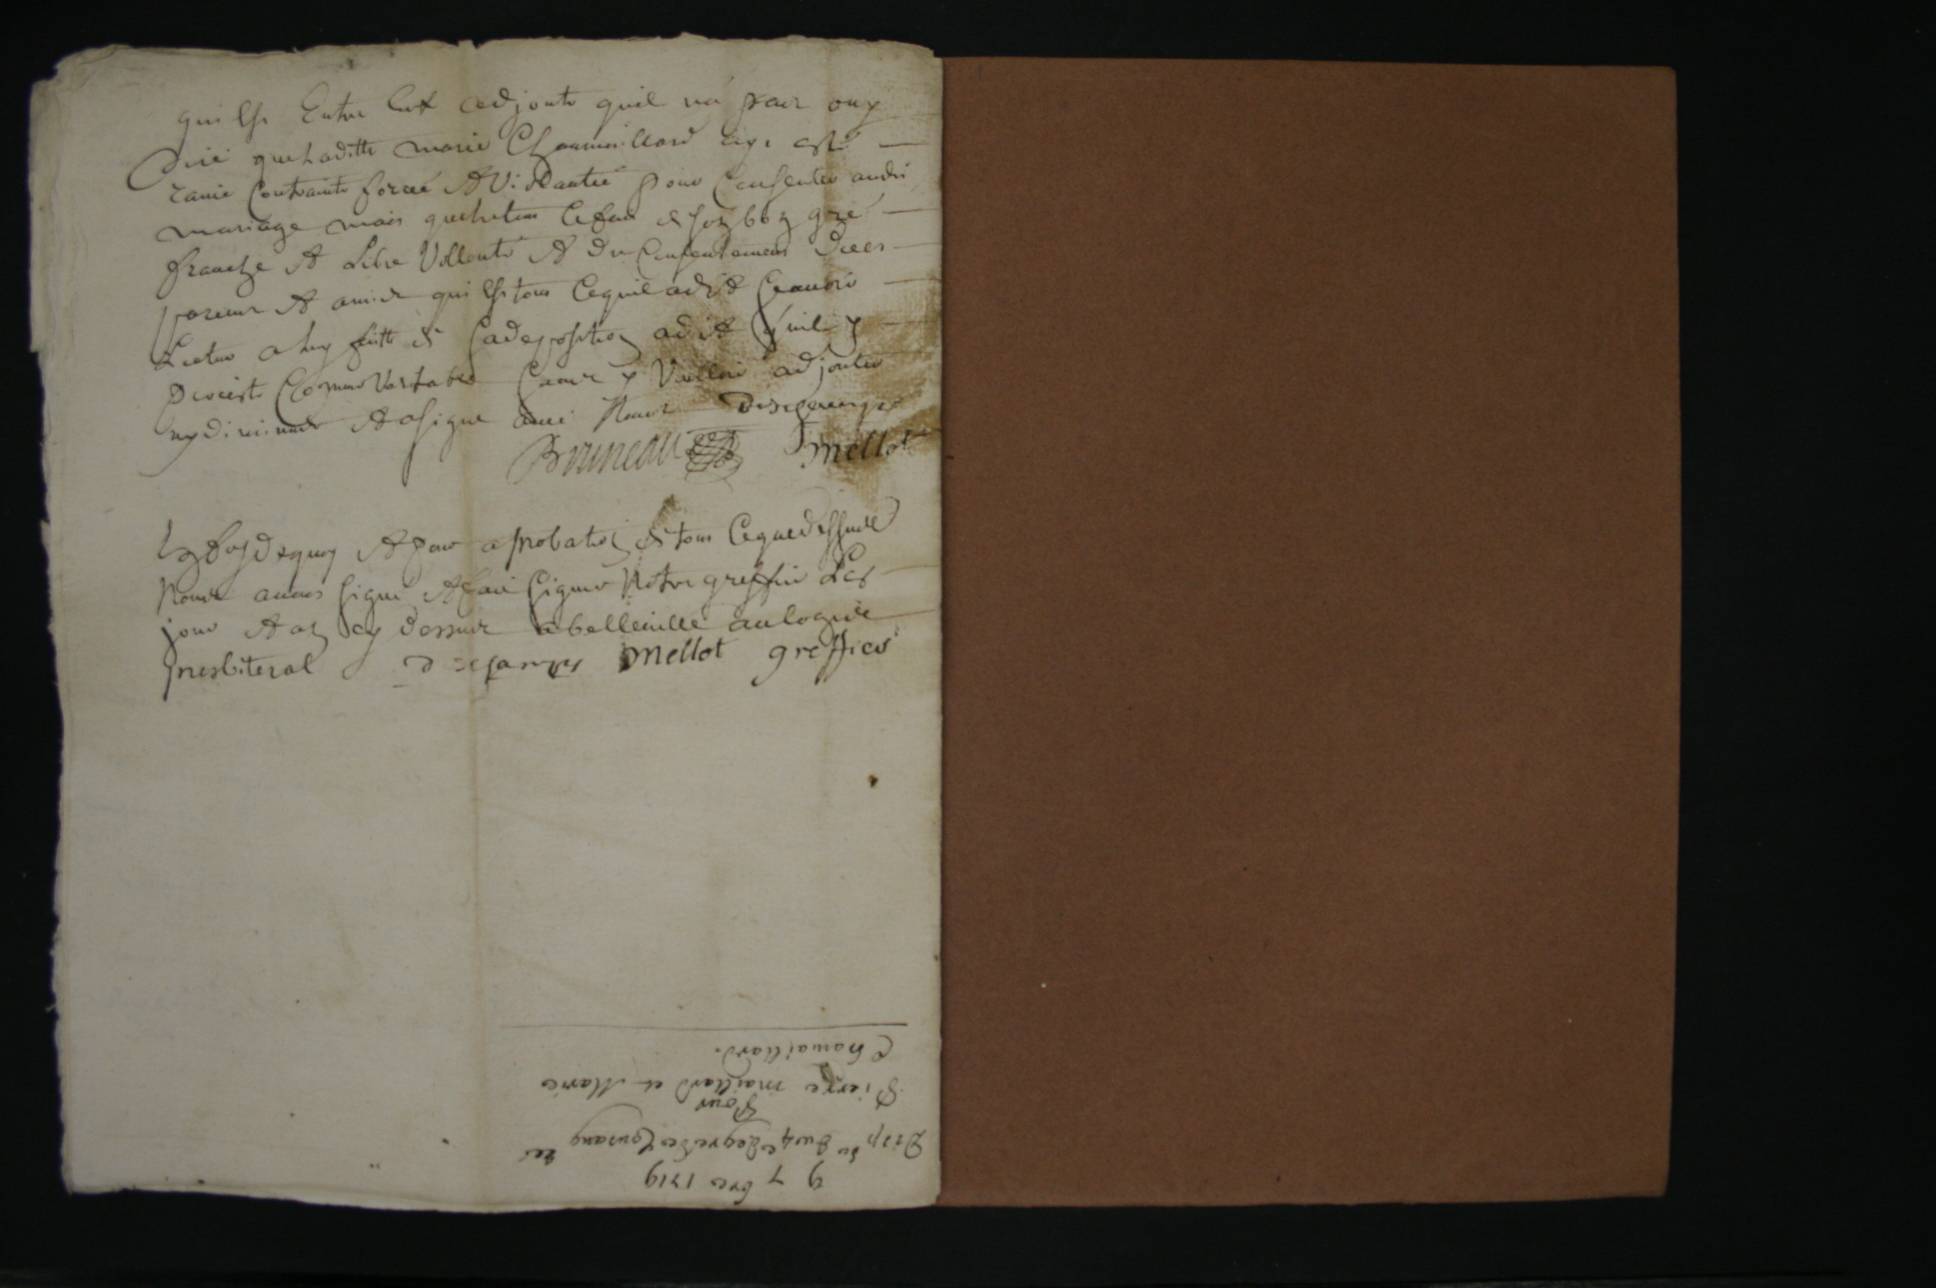 quilse Entre Eux adjoute quil na pair ouy
dire queladitte marie Chamaillard aye esté
ravie Contrainte forcée et Violantée pour Consentir audi
mariage mais que tous ce fai de son bon gré
franche et Libre Vollonté et du Consentement de ces
parens et amis qui est tous ce quil a dit scavoir
Lecture a luy faitte de sa deposition a dit quil y
persiste Comme Veritable sans y Vouloir adjouter
ny diminuer et a signé avec Nous Desgranges
Bruneau Mellot
En foy de quoy et pour aprobation de tous ce que dessus
Nous avons signé et fait signer Notre greffier Les
jour et an cy dessus a belleville au logis
presbiteral Desgranges Mellot greffier
9 7bre 1719
Disp du 3 au 4e degré de Consang
Pour
Pierre maillard et Marie
Chamaillard.